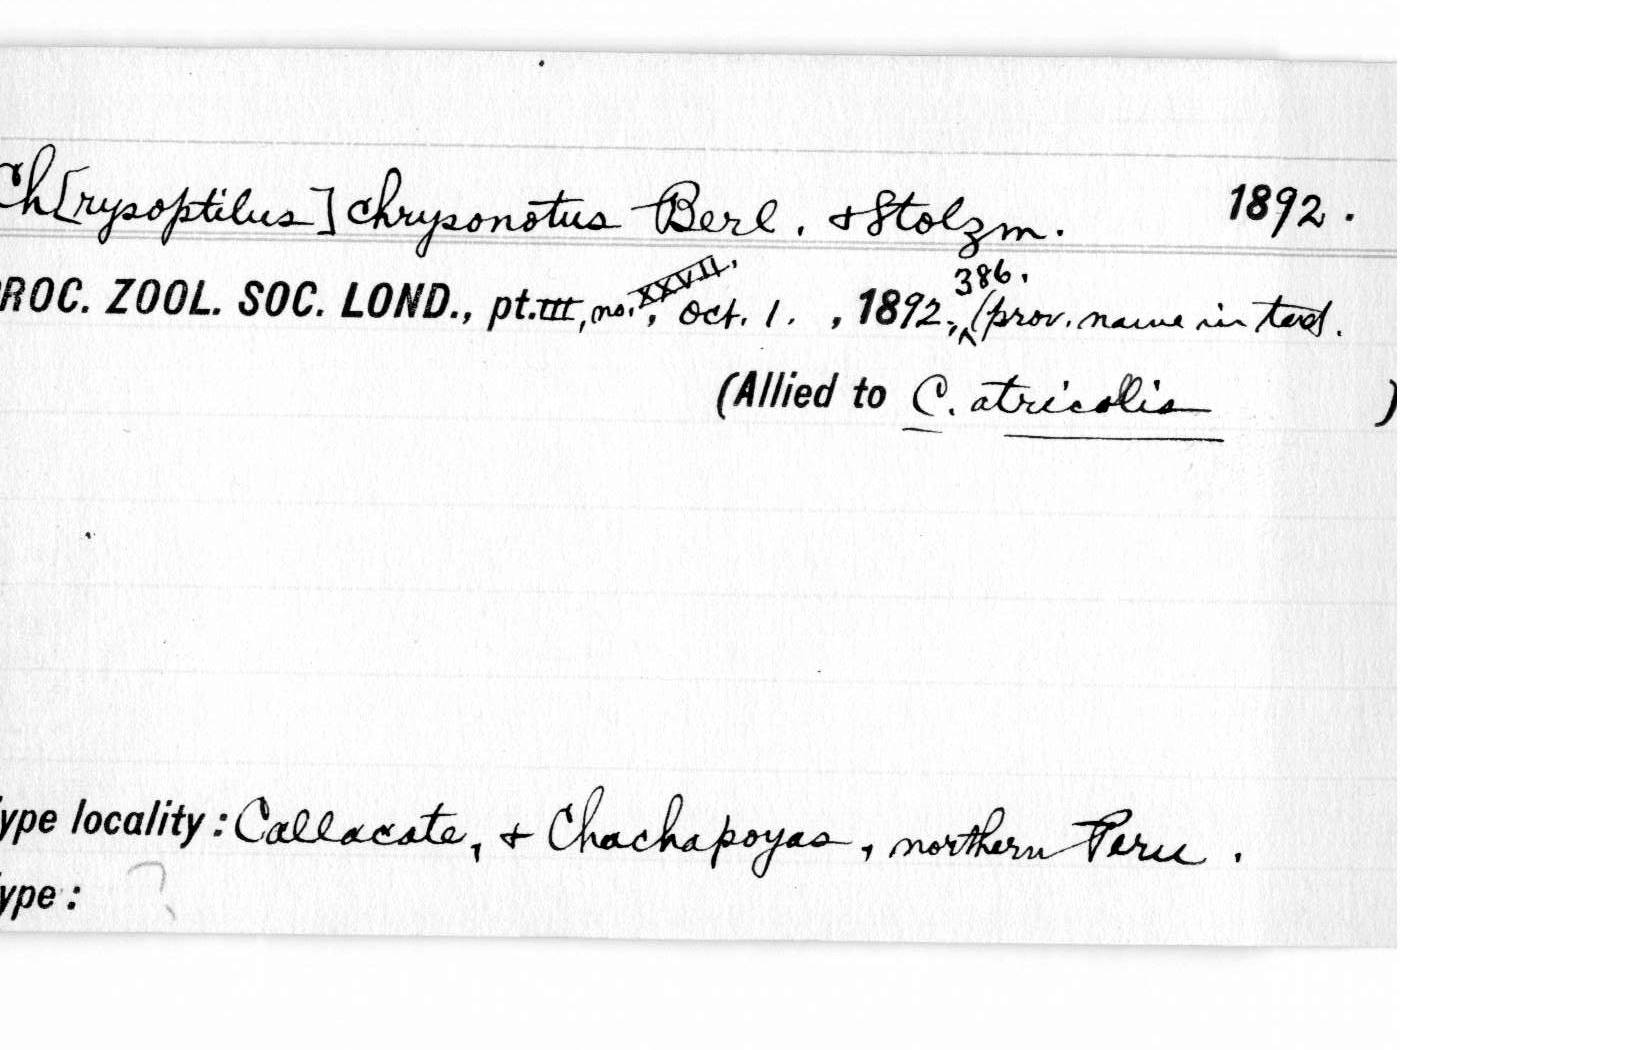 Ch[rysoptilus] chrysonotus Berl. & Stolzm. 1892.
ROC. ZOOL. SOC. LOND., pt. III, no. XXVII., Oct. 1. , 1892, 386. (prov. name in text.
(Allied to C. atricollis )
ype locality: Callacate, & Chachapoyas, northern Peru.
ype: ?